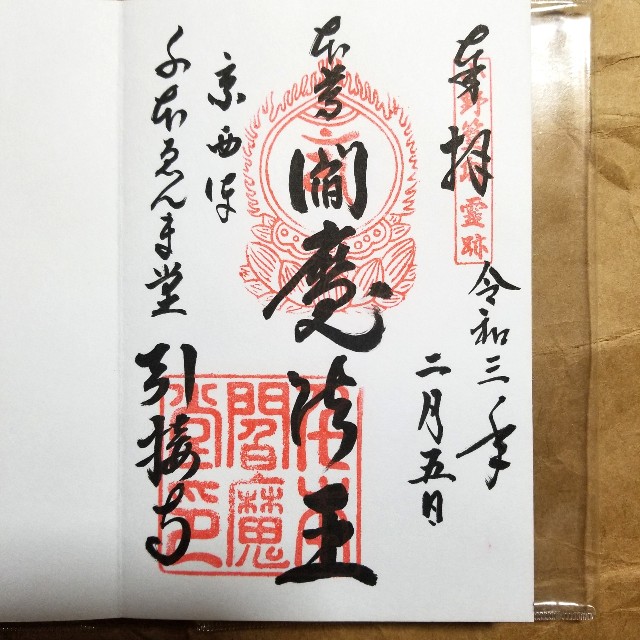 奉拝
令和三年
二月五日
本尊
閻魔法王
京西陣
千本ゑんま堂
引接寺